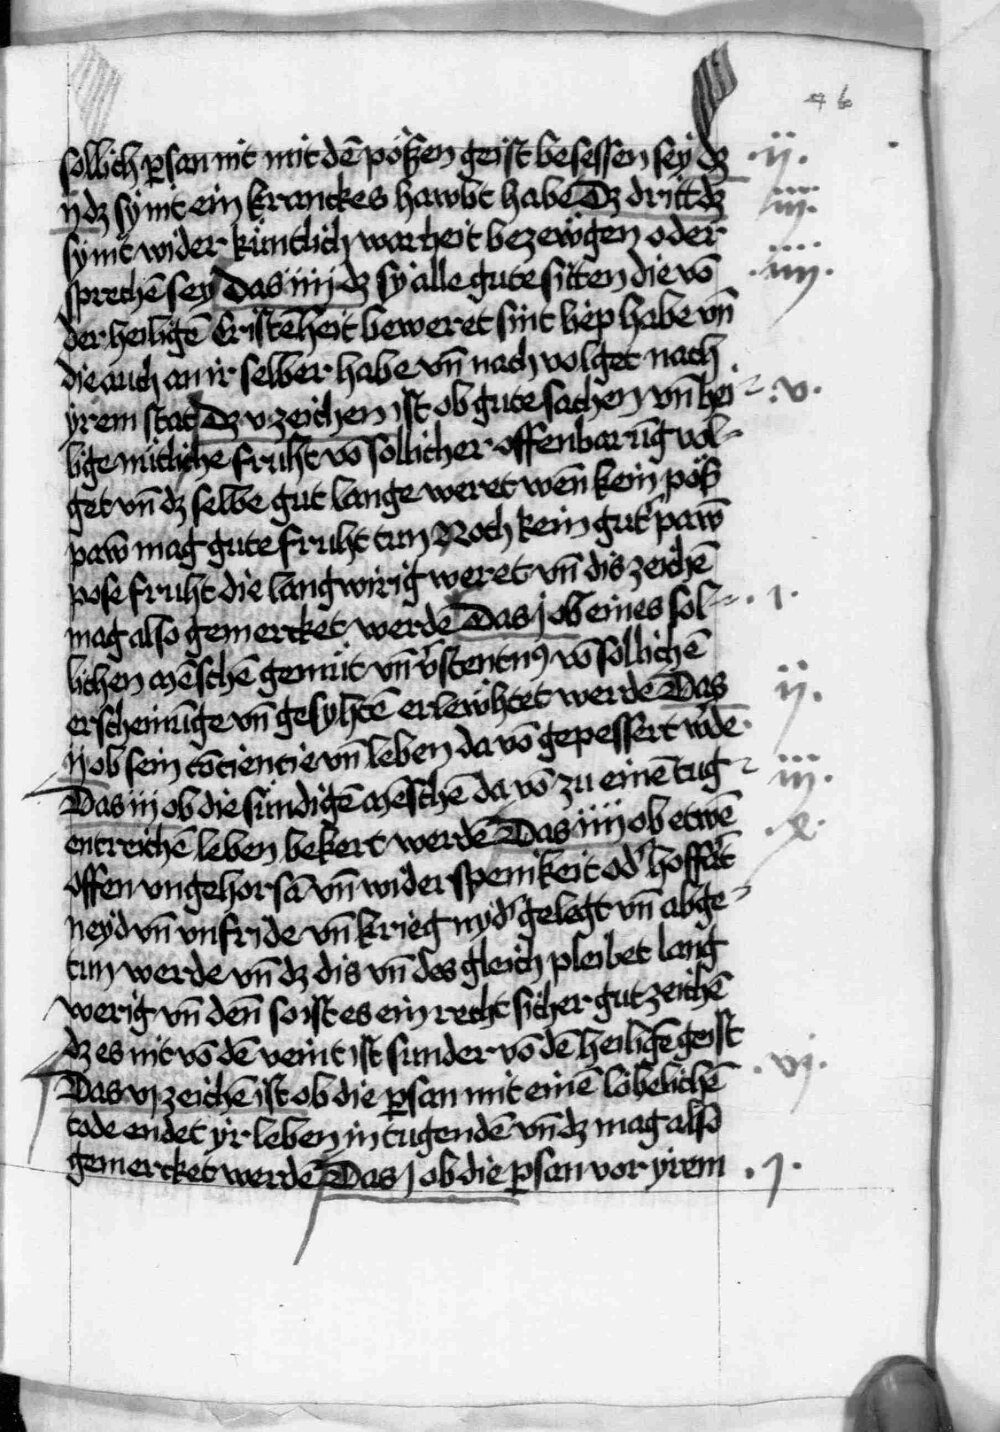 sollich ꝑsan nit mit dē pöszen geist besessen sey dz .ij.
ij dz sy nit ein kranckes hawbt habe Dz dritt dz .iij.
sy nit wider kuntlich warheit bezewgen oder
sprechē sey Das iiij dz sy alle gute sitten die vō .iiij.
der heiligē Cristēheit beweret sint liep habe vn̄
die auch an ir selber habe vn̄ nach volget nach
yrem stat Dz v zeichen ist ob gute sachen vn̄ hei .v.
lige nutliche fruht vō sollicher offenbarūg vol
get vn̄ dz selbe gut lange weret wen̄ kein pösz
paw̄ mag gute fruht tun Noch kein gut paw̄
pose fruht die langwirig weret vn̄ dis zeichē
mag also gemercket werdē Das j ob eines sol .1.
lichen mēschē gemut vn̄ v̄stentnꝰ vō sollichē
erscheinūge vn̄ gesyhtē erlewhtet werde Das .ij.
ij ob sein cōciencie vn̄ leben da vō gepessert w̄dē
Das iij ob die sundigē mēschē da vō zu einē tug .iij.
entreichē leben bekert werdē Das iiij ob etwē
offen vngehorsā vn̄ widerspenikeit od' hoffert
neyd vn̄ vnfride vn̄ krieg nyd' gelegt vn̄ abge
tun werde vn̄ dz dis vn̄ des gleich pleibet lang
werig vn̄ den̄ so ist es ein recht sicher gut zeichē
dz es nit vō dē veint ist sunder vō dē heiligē geist
Das vj zeichē ist ob die ꝑsan mit einē lobelichē .vj.
tode endet yr leben in tugendē vn̄ dz mag also
gemercket werdē Das j ob die ꝑsan vor yrem .j.